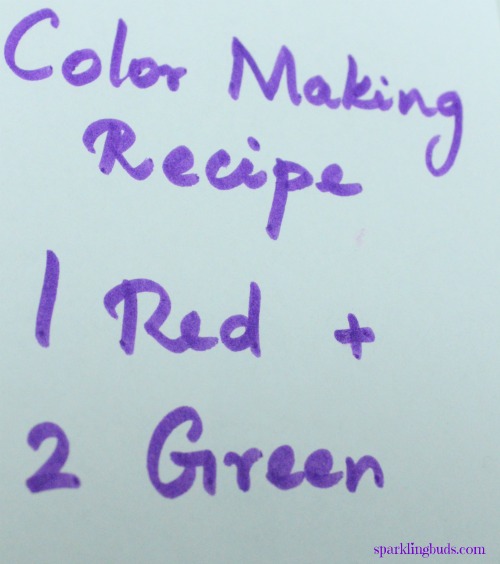 Color Making
Recipe
1 Red +
2 Green
sparklingbuds.com